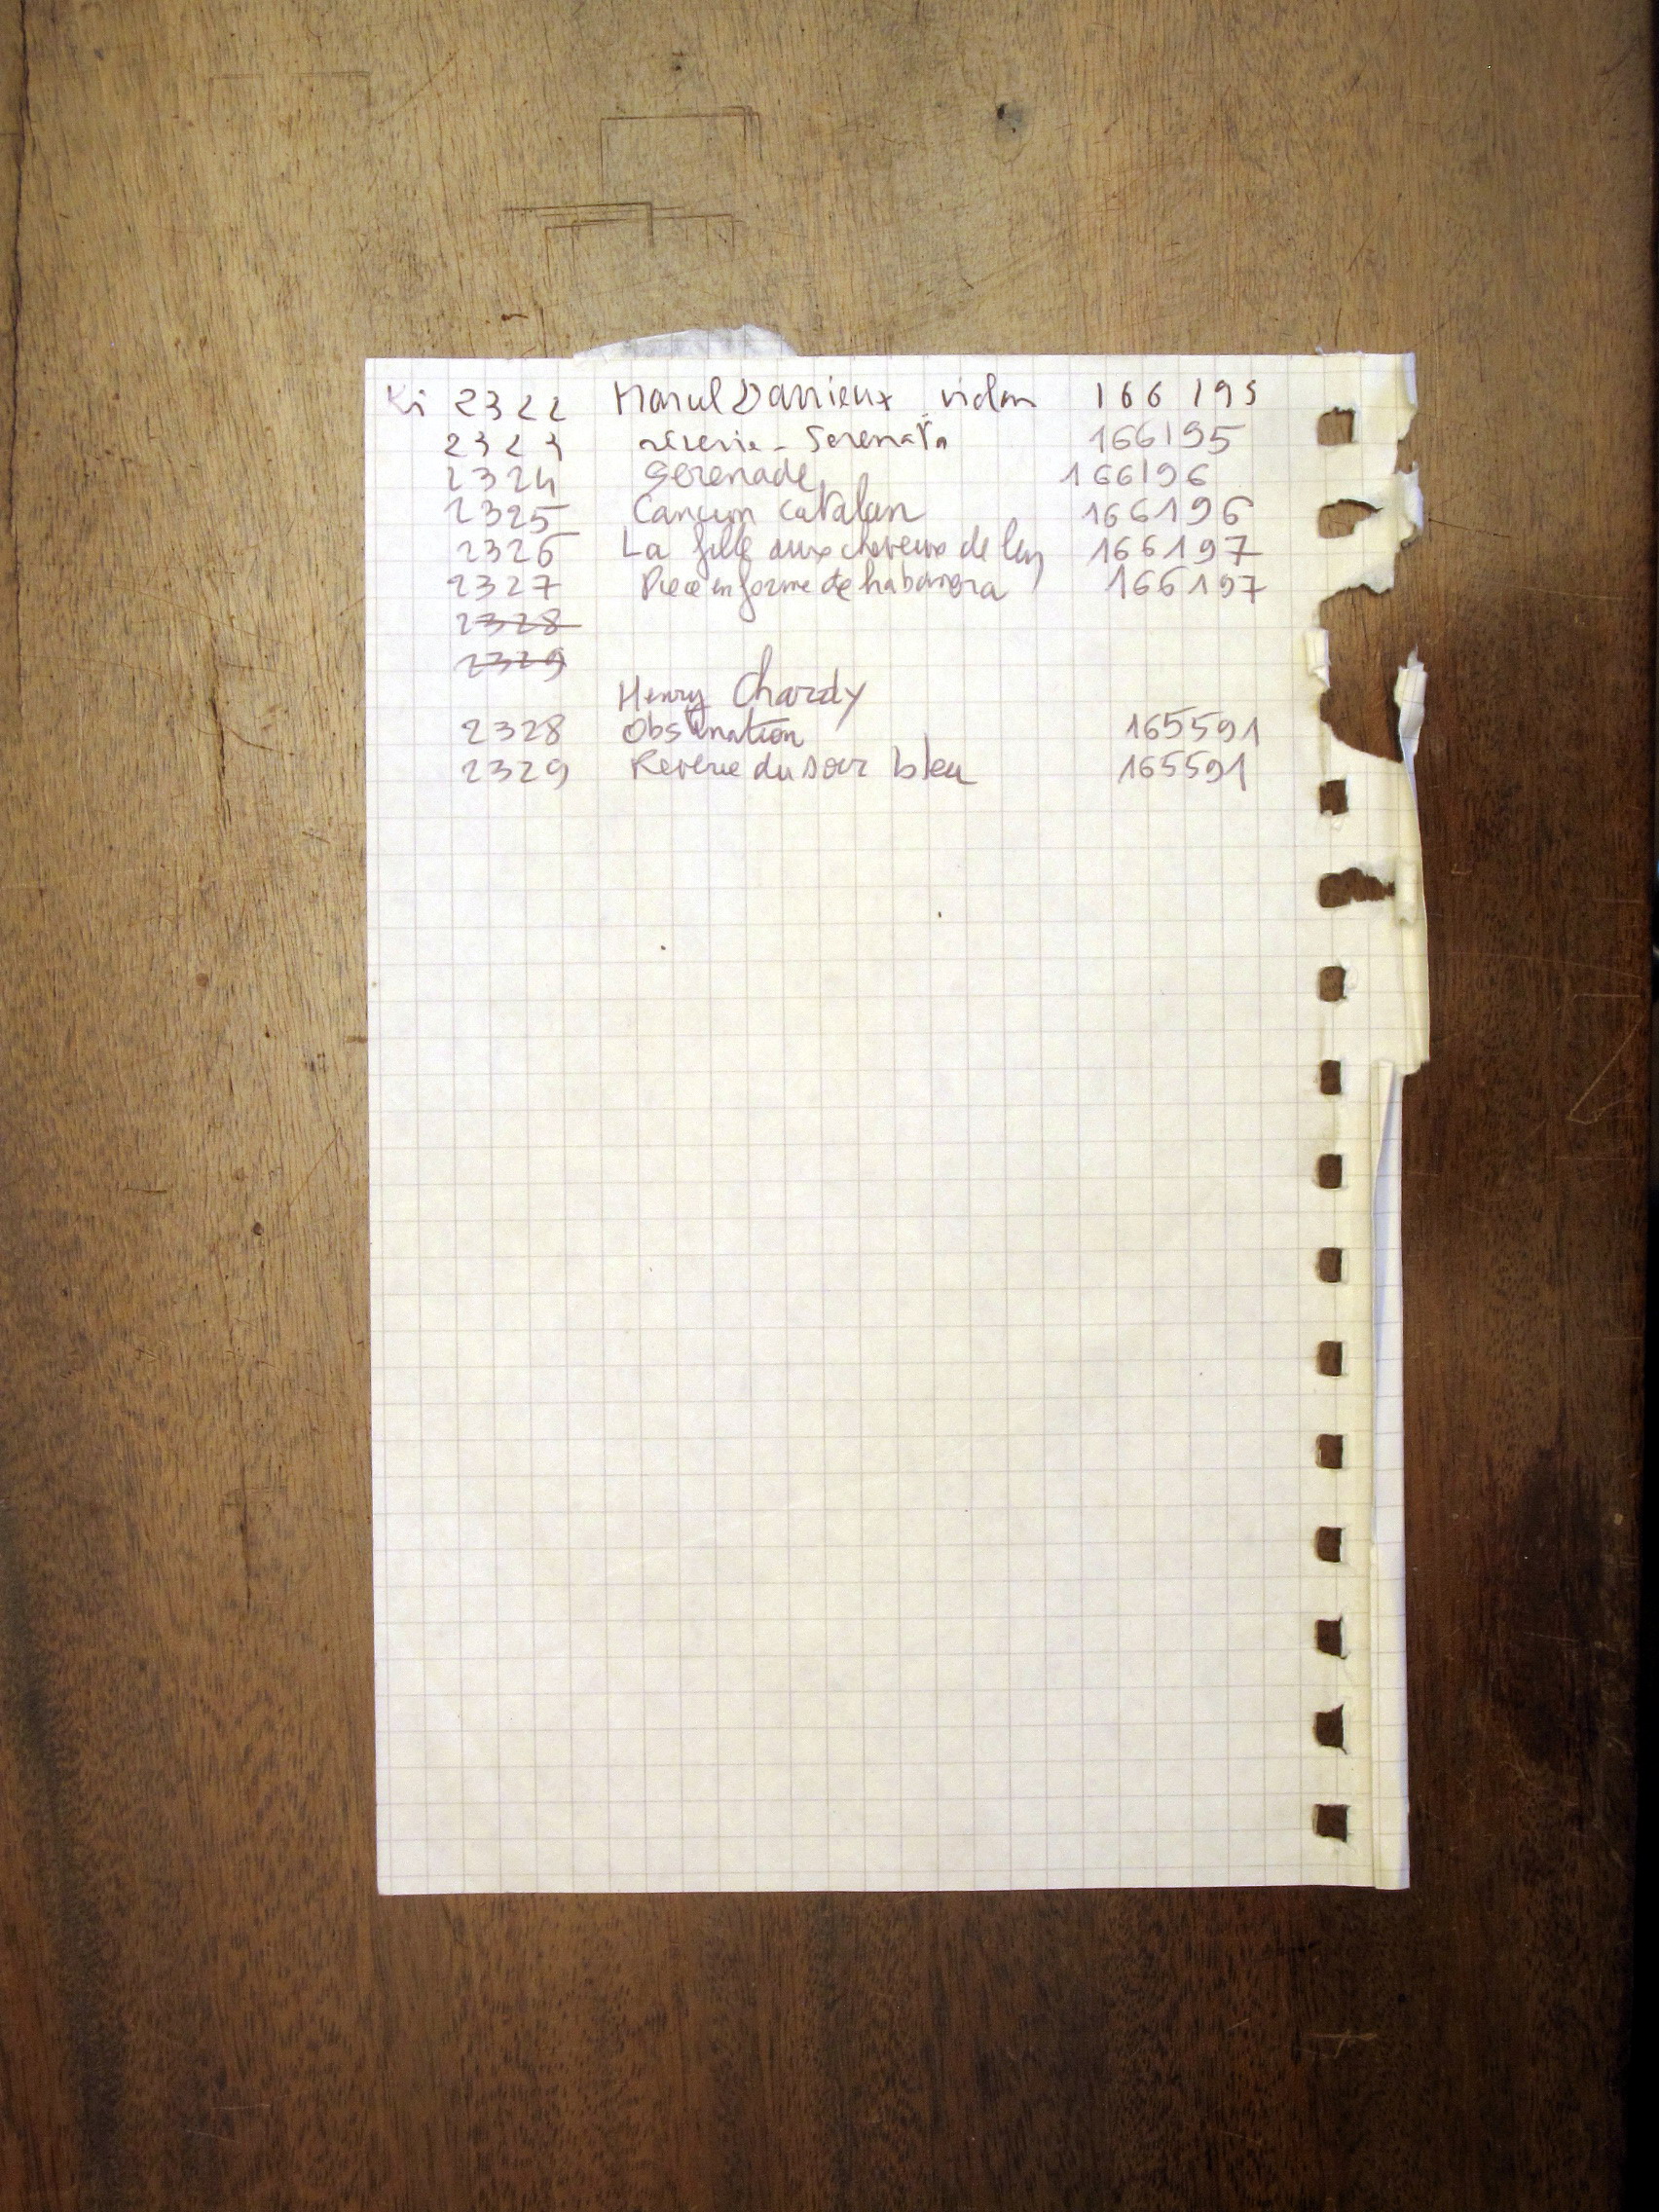 Ki 2322 Marcel Darrieux violon 166 195
2323 rêverie - Serenata 166195
2324 Serenade 166196
2325 Cançun catalan 166196
2326 La fille aux cheveux de lin 166197
2327 Piece en forme de habanera 166197
2328
2329
Henry Chardy
2328 Obstination 165591
2329 Reverie du soir bleu 165591